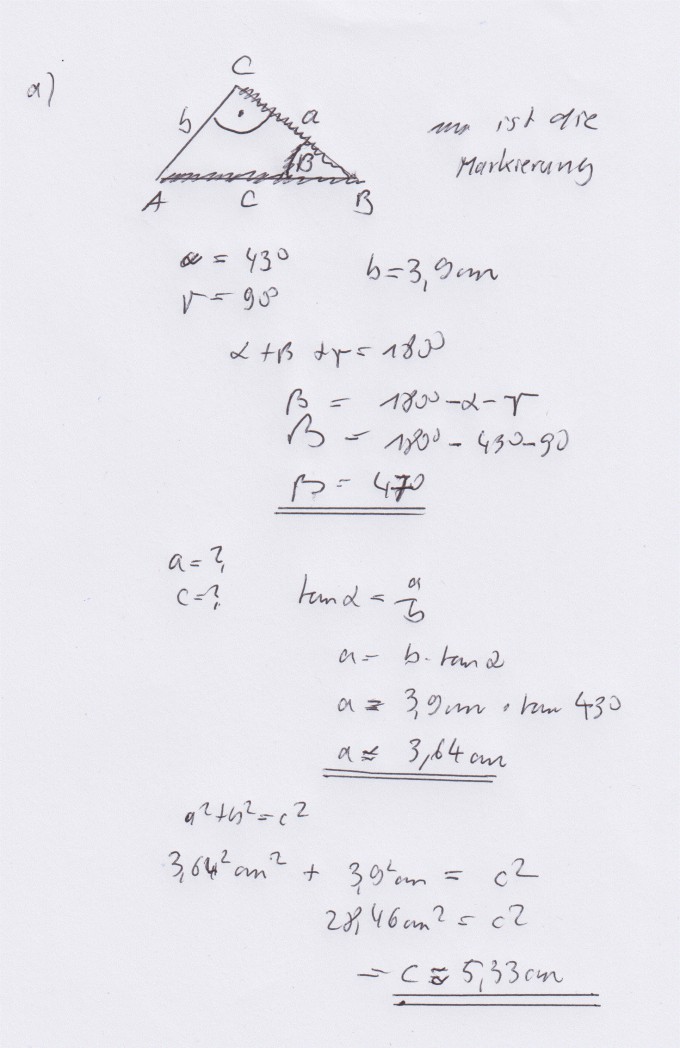 a)
C
b
a
ist die
Markierung
β
A
c
B
α = 43°
b = 3,9cm
γ = 90°
α + β + γ = 180°
β = 180° - α - γ
β = 180° - 43° - 90
β = 47°
a = ?
c = ?
tan α = a/b
a = b · tan α
a = 3,9cm · tan 43°
a ≈ 3,64 cm
a² + b² = c²
3,64² cm² + 3,9² cm = c²
28,46 cm² = c²
= c ≈ 5,33 cm